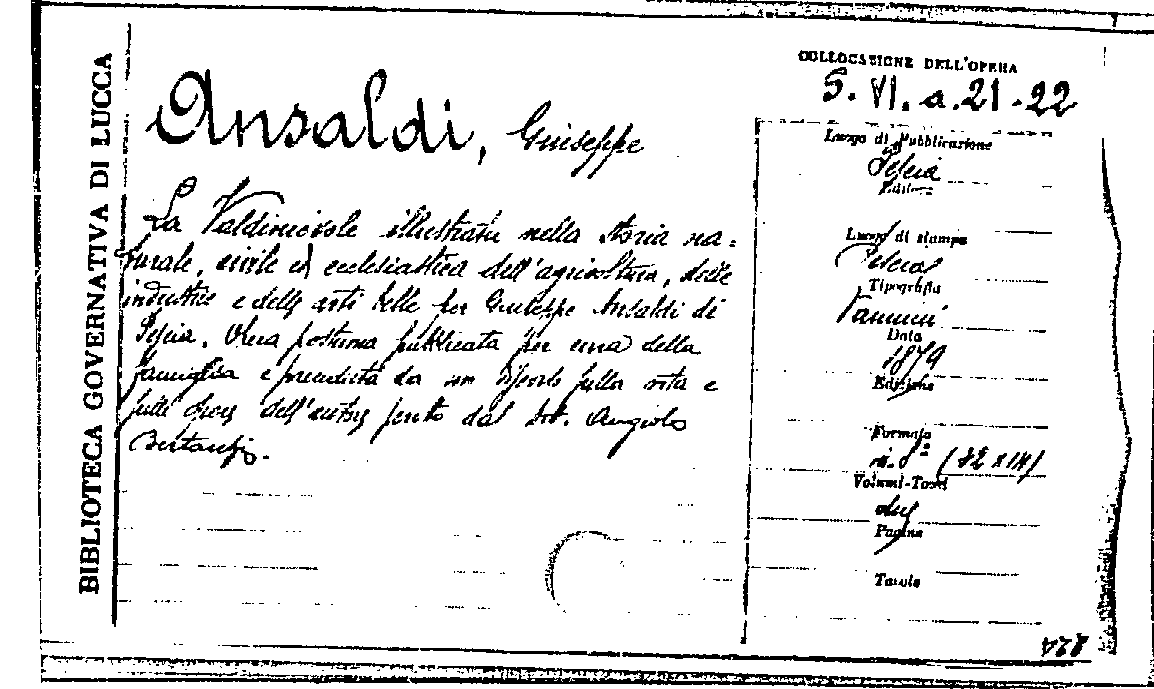 BIBLIOTECA GOVERNATIVA DI LUCCA
COLLOCAZIONE DELL'OPERA
S. VI. a. 21-22
Ansaldi, Giuseppe
La Valdinievole illustrata nella storia na=
turale, civile ed ecclesiastica dell'agricoltura, delle
industrie e delle arti belle per Giuseppe Ansaldi di
Pescia. Opera postuma pubblicata per cura della
famiglia e preceduta da un discorso sulla vita e
sulle opere dell'autore scritto dal Dott. Angiolo
Bertacchi.
Luogo di Pubblicazione
Pescia
Editore
Luogo di stampa
Pescia
Tipografia
Vannini
Data
1879
Edizione
Formato
in. 8° (22 x 14)
Volumi-Tomi
due
Pagine
Tavole